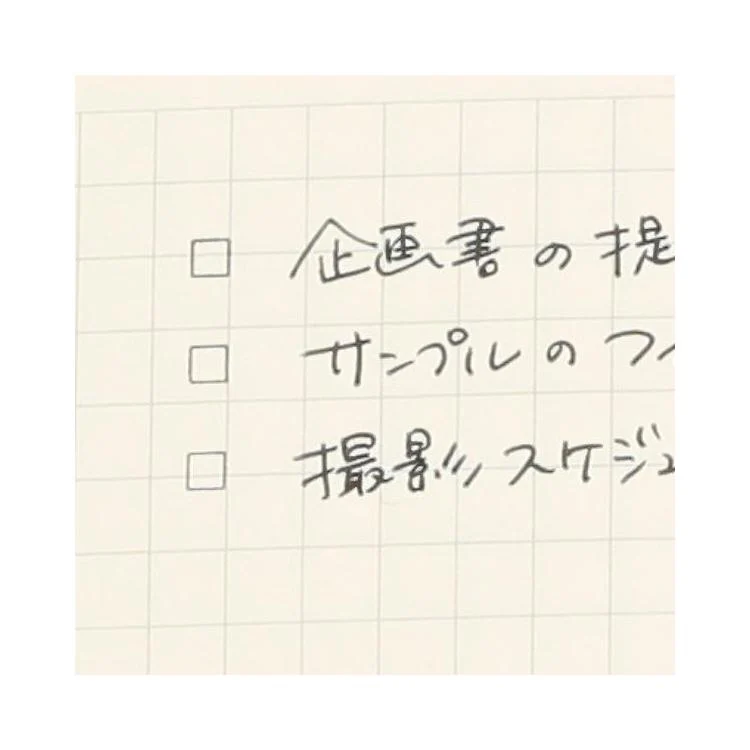 □ 企画書の提
□ サンプルのフィ
□ 撮影スケジュ